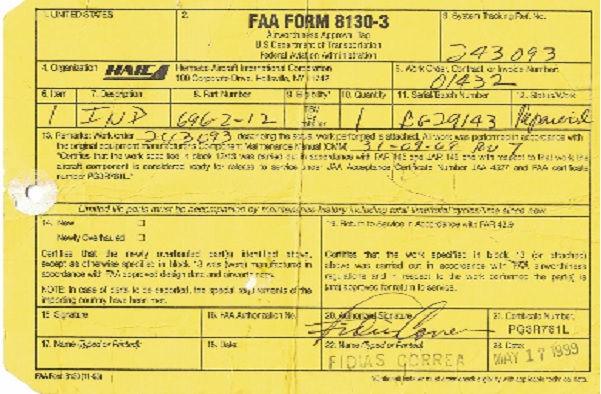 1. UNITED STATES
2.
FAA FORM 8130-3
Airworthiness Approval Tag
U.S. Department of Transportation
Federal Aviation Administration
3. System Tracking Ref. No.
243093
4. Organization
HAIC
Aircraft International Corporation
5. Work Order, Contract, or Invoice Number:
01432
6. Item
7. Description
8. Part Number
9. Eligibility*
10. Quantity
11. Serial/Batch Number
12. Status/Work
1
IND
6962-12
1
Repaired
13. Remarks: Workorder 243093 describing the actual work performed is attached. All work was performed in accordance with
the original equipment manufacturing Component Maintenance Manual (CMM)
"Certifies that the work specified in block 12/13 was carried out in accordance with FAR 145 and JAR 145 and with respect to that work the
aircraft component is considered ready for release to service under JAA Acceptance Certificate Number JAA 4377 and FAA certificate
number PG3R781L"
Limited life parts must be accompanied by maintenance history including total time/total cycles/time since new.
14. New
Newly Overhauled
Certifies that the newly overhauled part(s) identified above,
except as otherwise specified in block 13 was (were) manufactured in
accordance with FAA approved design data and airworthy.
NOTE: In case of parts to be exported, the special requirements of the
importing country have been met.
19. Return to Service in Accordance with FAR 43.9
Certifies that the work specified in block 13 (or attached)
above was carried out in accordance with FAA airworthiness
regulations and in respect to the work performed the part(s) is
(are) approved for return to service.
15. Signature
16. FAA Authorization No.
20. Authorized Signature
21. Certificate Number
PG3R781L
17. Name (Typed or Printed):
18. Date:
22. Name (Typed or Printed):
FIDIAS CORREA
23. Date:
MAY 17 1999
FAA Form 8130 (11-93)